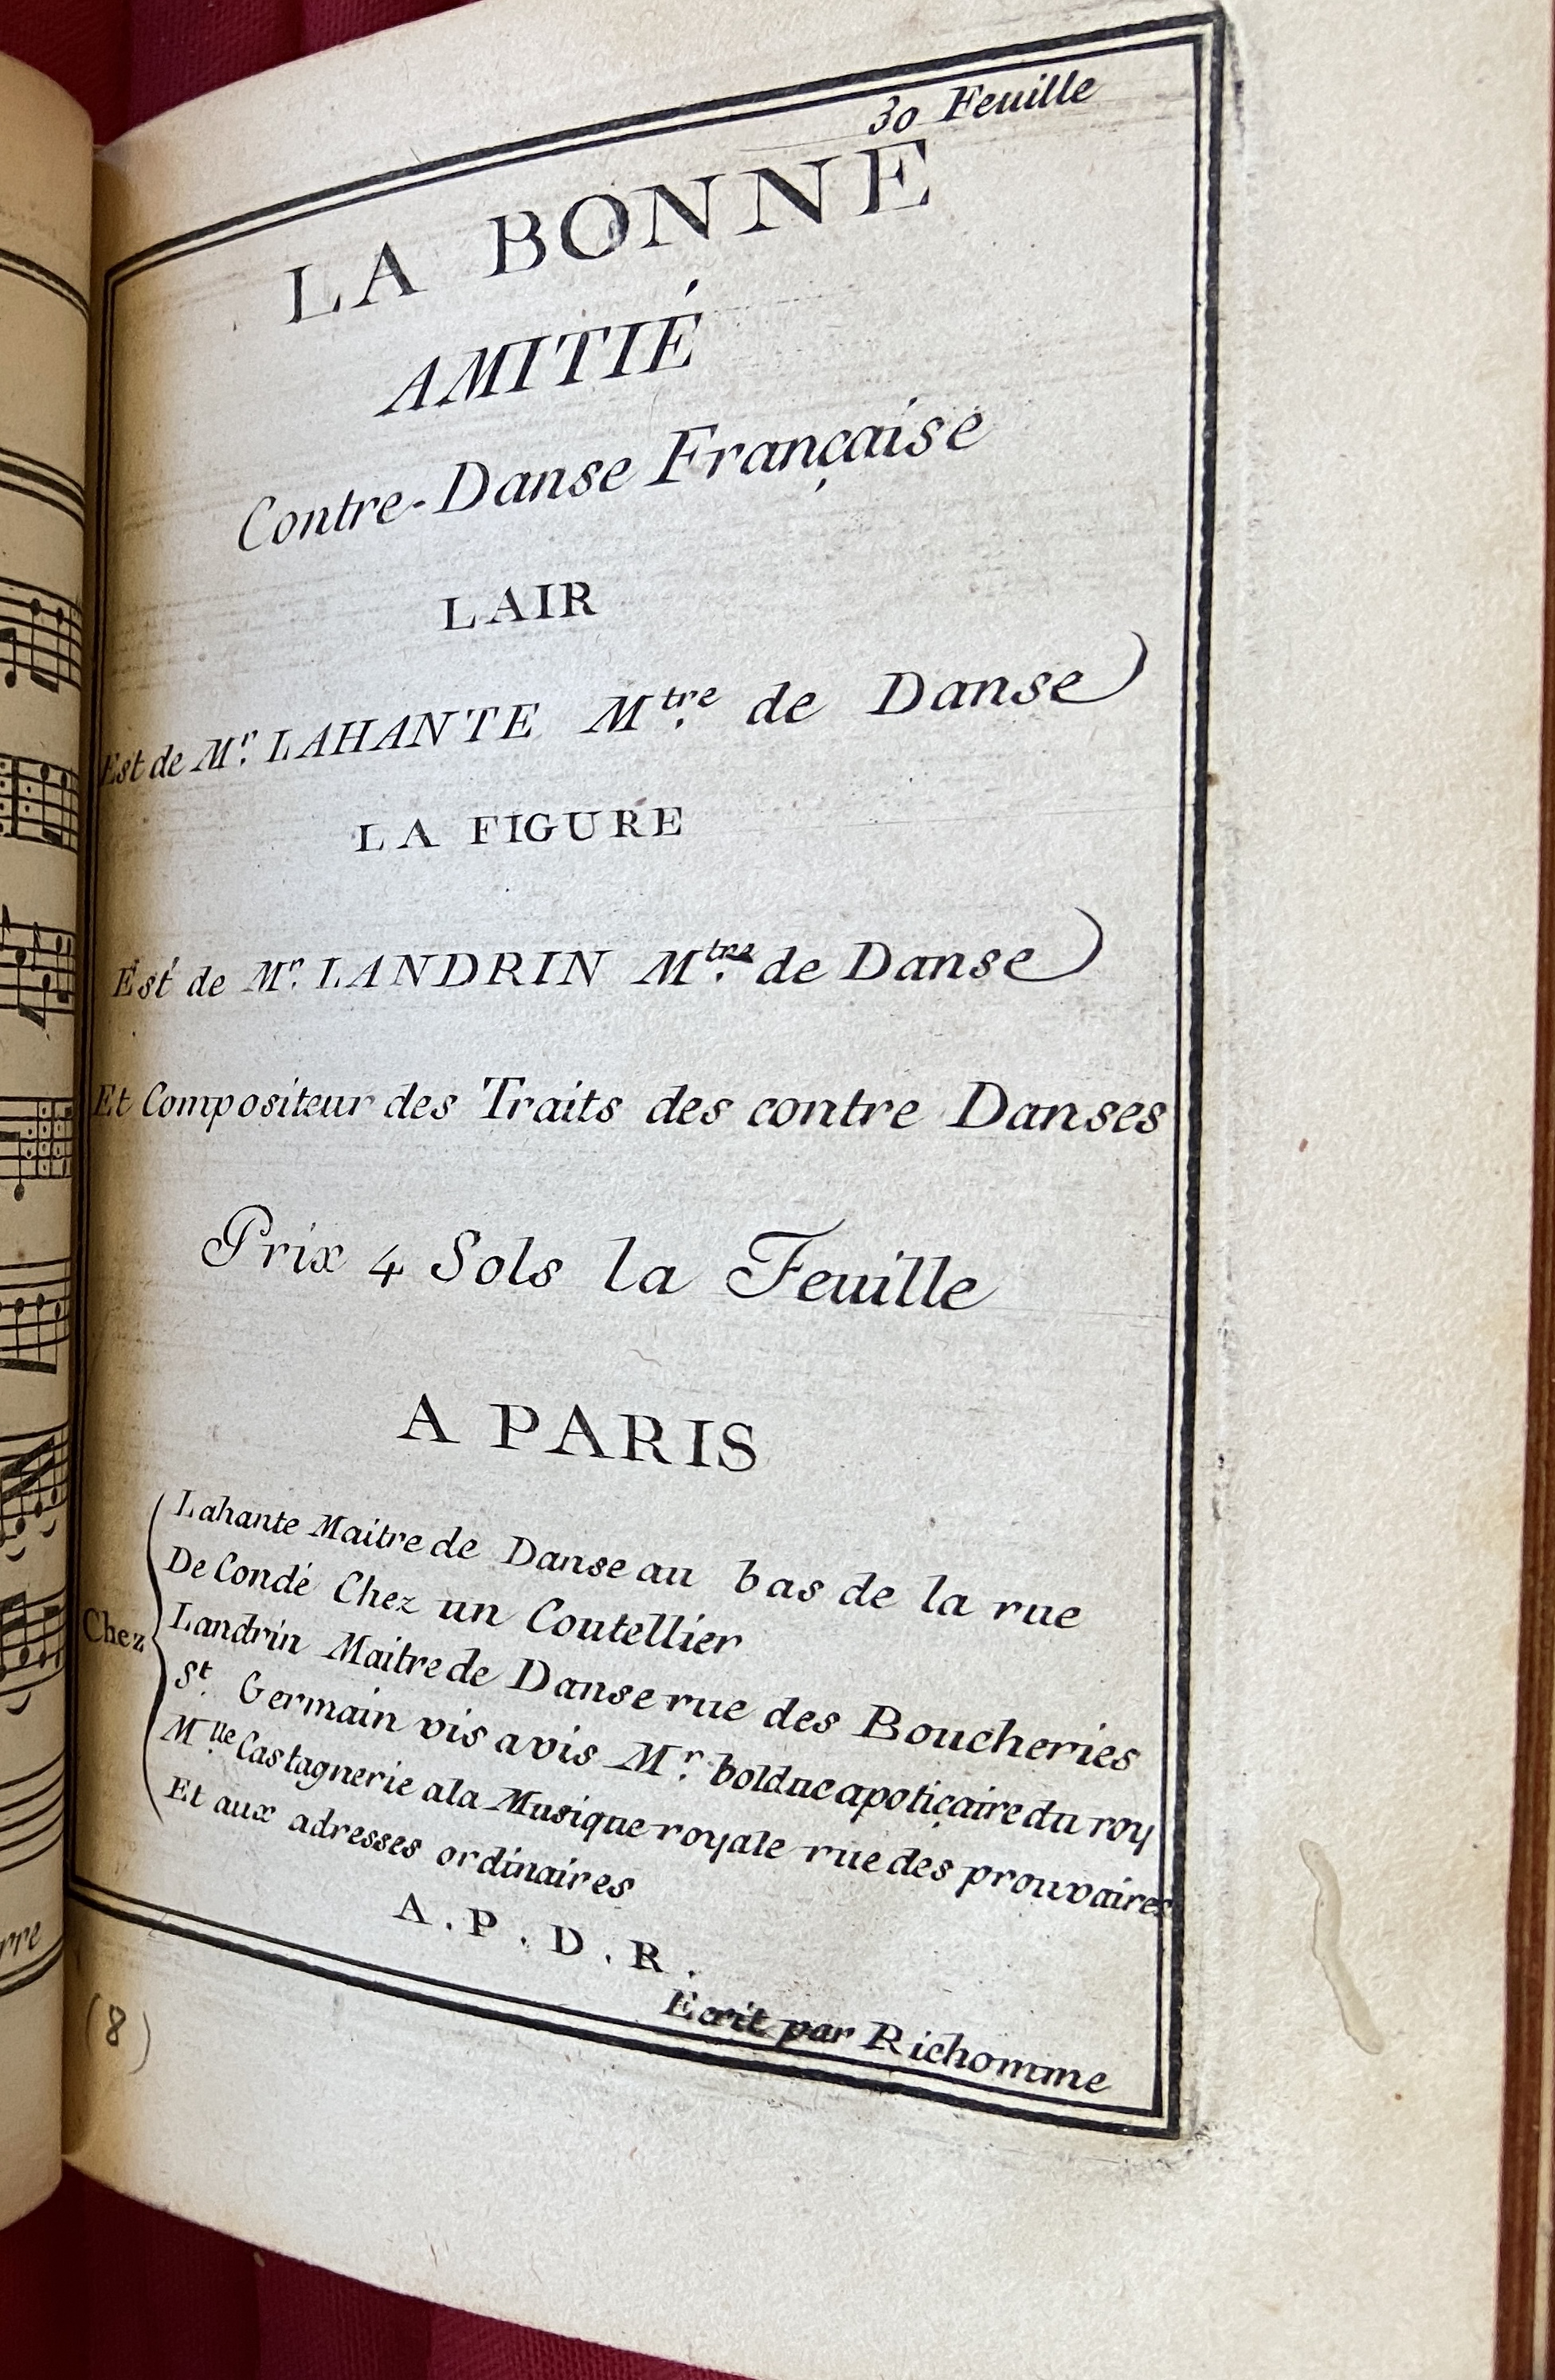 30 Feuille
LA BONNE
AMITIÉ
Contre-Danse Française
LAIR
Est de Mr. LAHANTE Mtre. de Danse
LA FIGURE
Est de Mr. LANDRIN Mtre. de Danse
Et Compositeur des Traits des contre Danses
Prix 4 Sols la Feuille
A PARIS
Chez
Lahante Maitre de Danse au bas de la rue
De Condé Chez un Coutellier
Landrin Maitre de Danse rue des Boucheries
St. Germain vis avis Mr. bolduc apoticaire du roy
Mlle Castagnerie ala Musique royale rue des prouvaires
Et aux adresses ordinaires
A.P.D.R.
Ecrit par Richomme
rre
(8)